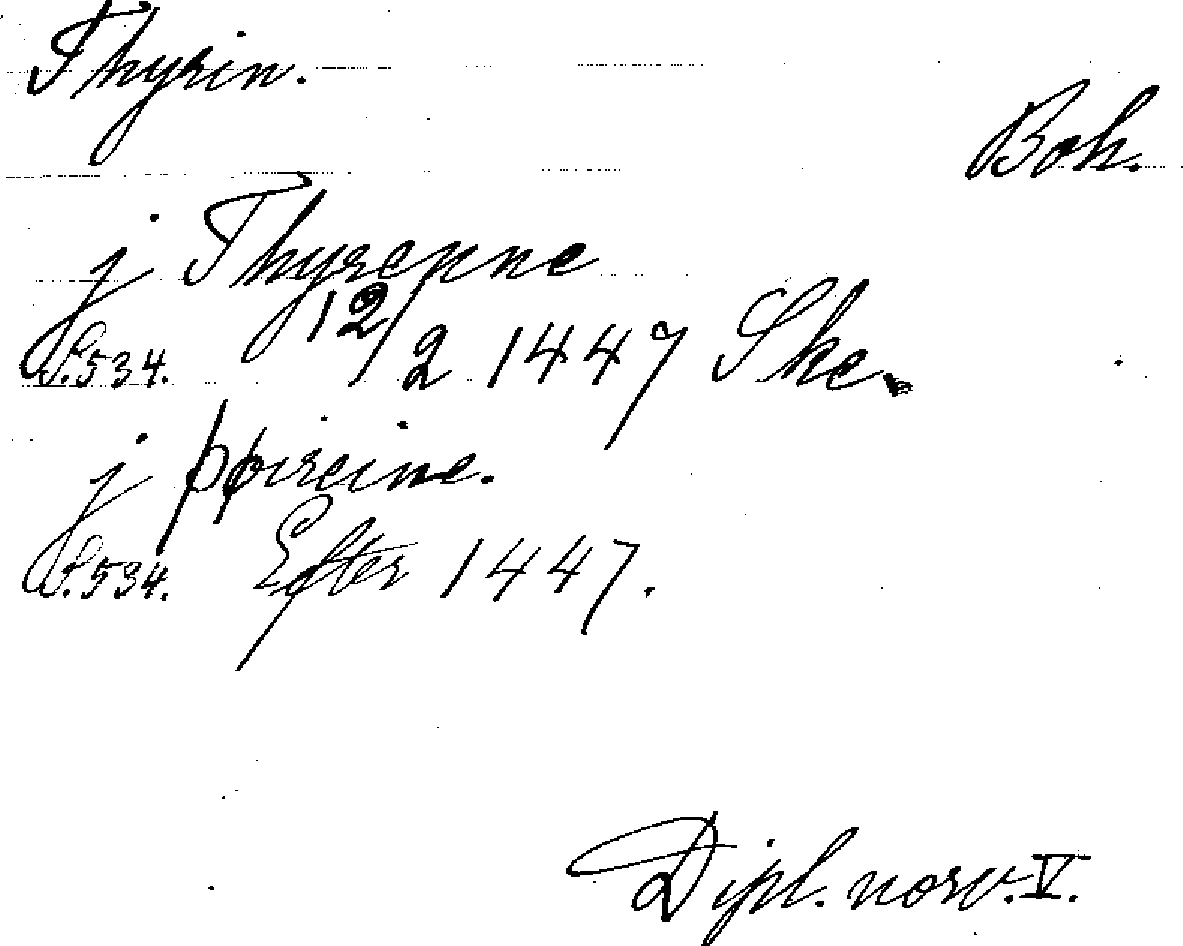 Thyrin.
Boh.
j Thyrenne
S. 534. 12/2 1447 Ske.
j þøireine.
S. 534. Efter 1447.
Dipl. norv. V.